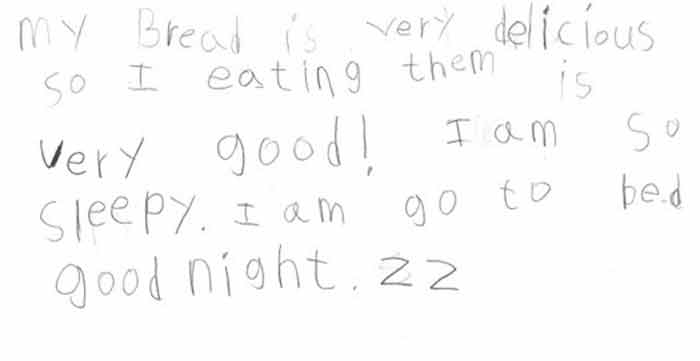 My Bread is very delicious
so I eating them is
very good! I am so
sleepy. I am go to bed
good night. zz